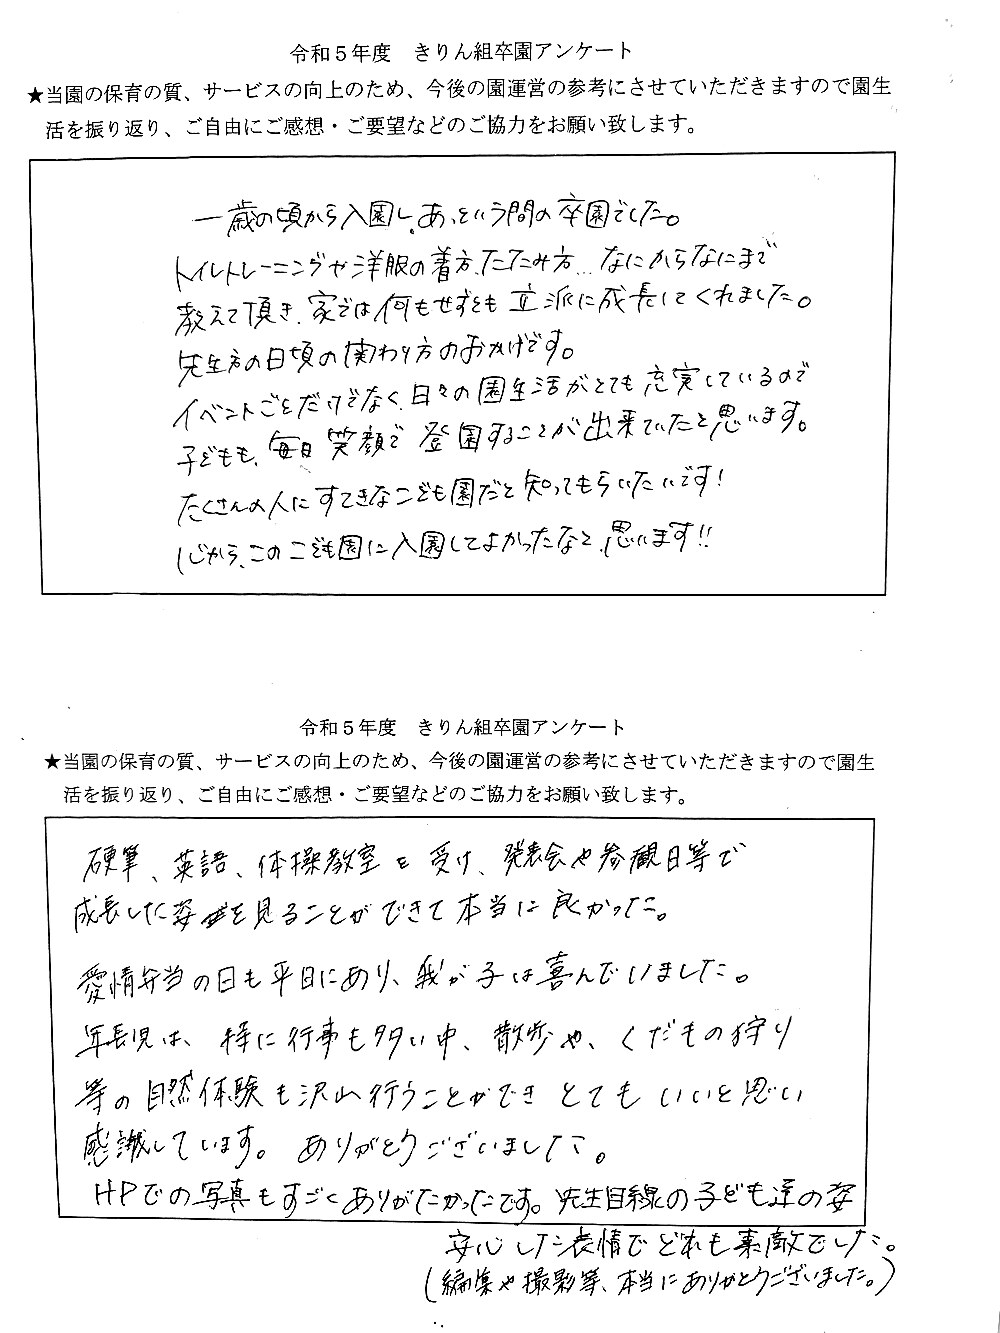 令和５年度　きりん組卒園アンケート
★当園の保育の質、サービスの向上のため、今後の園運営の参考にさせていただきますので園生
活を振り返り、ご自由にご感想・ご要望などのご協力をお願い致します。
一歳の頃から入園し、あっという間の卒園でした。
トイレトレーニングや洋服の着方、たたみ方…なにからなにまで
教えて頂き、家では何もせずとも立派に成長してくれました。
先生方の日頃の関わり方のおかげです。
イベントごとだけでなく、日々の園生活がとても充実しているので
子どもも、毎日笑顔で登園することが出来ていたと思います。
たくさんの人にすてきなこども園だと知ってもらいたいです！
心から、このこども園に入園してよかったなと思います!!
令和５年度　きりん組卒園アンケート
★当園の保育の質、サービスの向上のため、今後の園運営の参考にさせていただきますので園生
活を振り返り、ご自由にご感想・ご要望などのご協力をお願い致します。
硬筆、英語、体操教室を受け、発表会や参観日等で
成長した姿を見ることができて本当に良かった。
愛情弁当の日も平日にあり、我が子は喜んでいました。
年長児は、特に行事も多い中、散歩や、くだもの狩り
等の自然体験も沢山行うことができとてもいいと思い
感謝しています。ありがとうございました。
HPでの写真もすごくありがたかったです。先生目線の子ども達の姿
安心した表情でどれも素敵でした。
(編集や撮影等、本当にありがとうございました。)